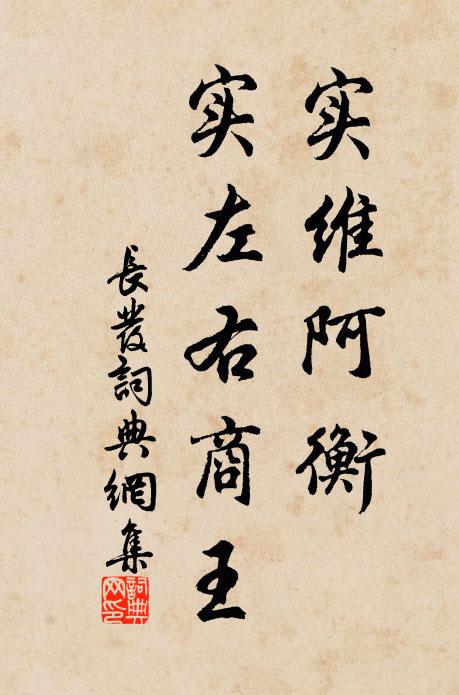 实维阿衡
实左右商王
長發詞典網集
詞典
网印